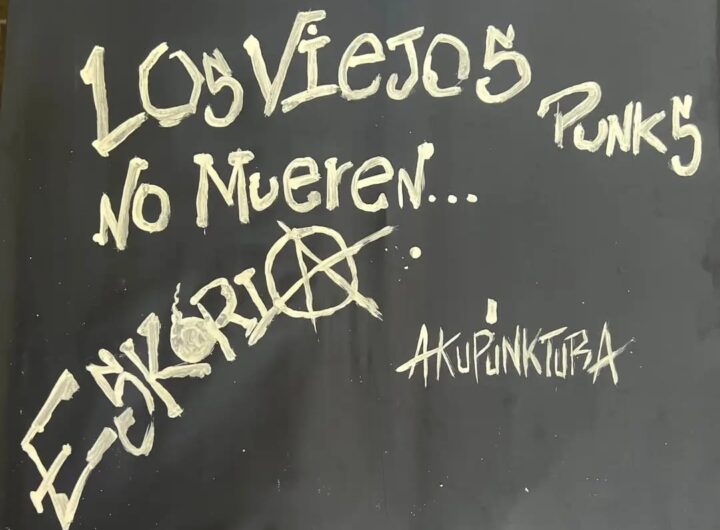 LOS VIEJOS
PUNKS
NO MUEREN...
ESKORIA
AKUPUNKTURA